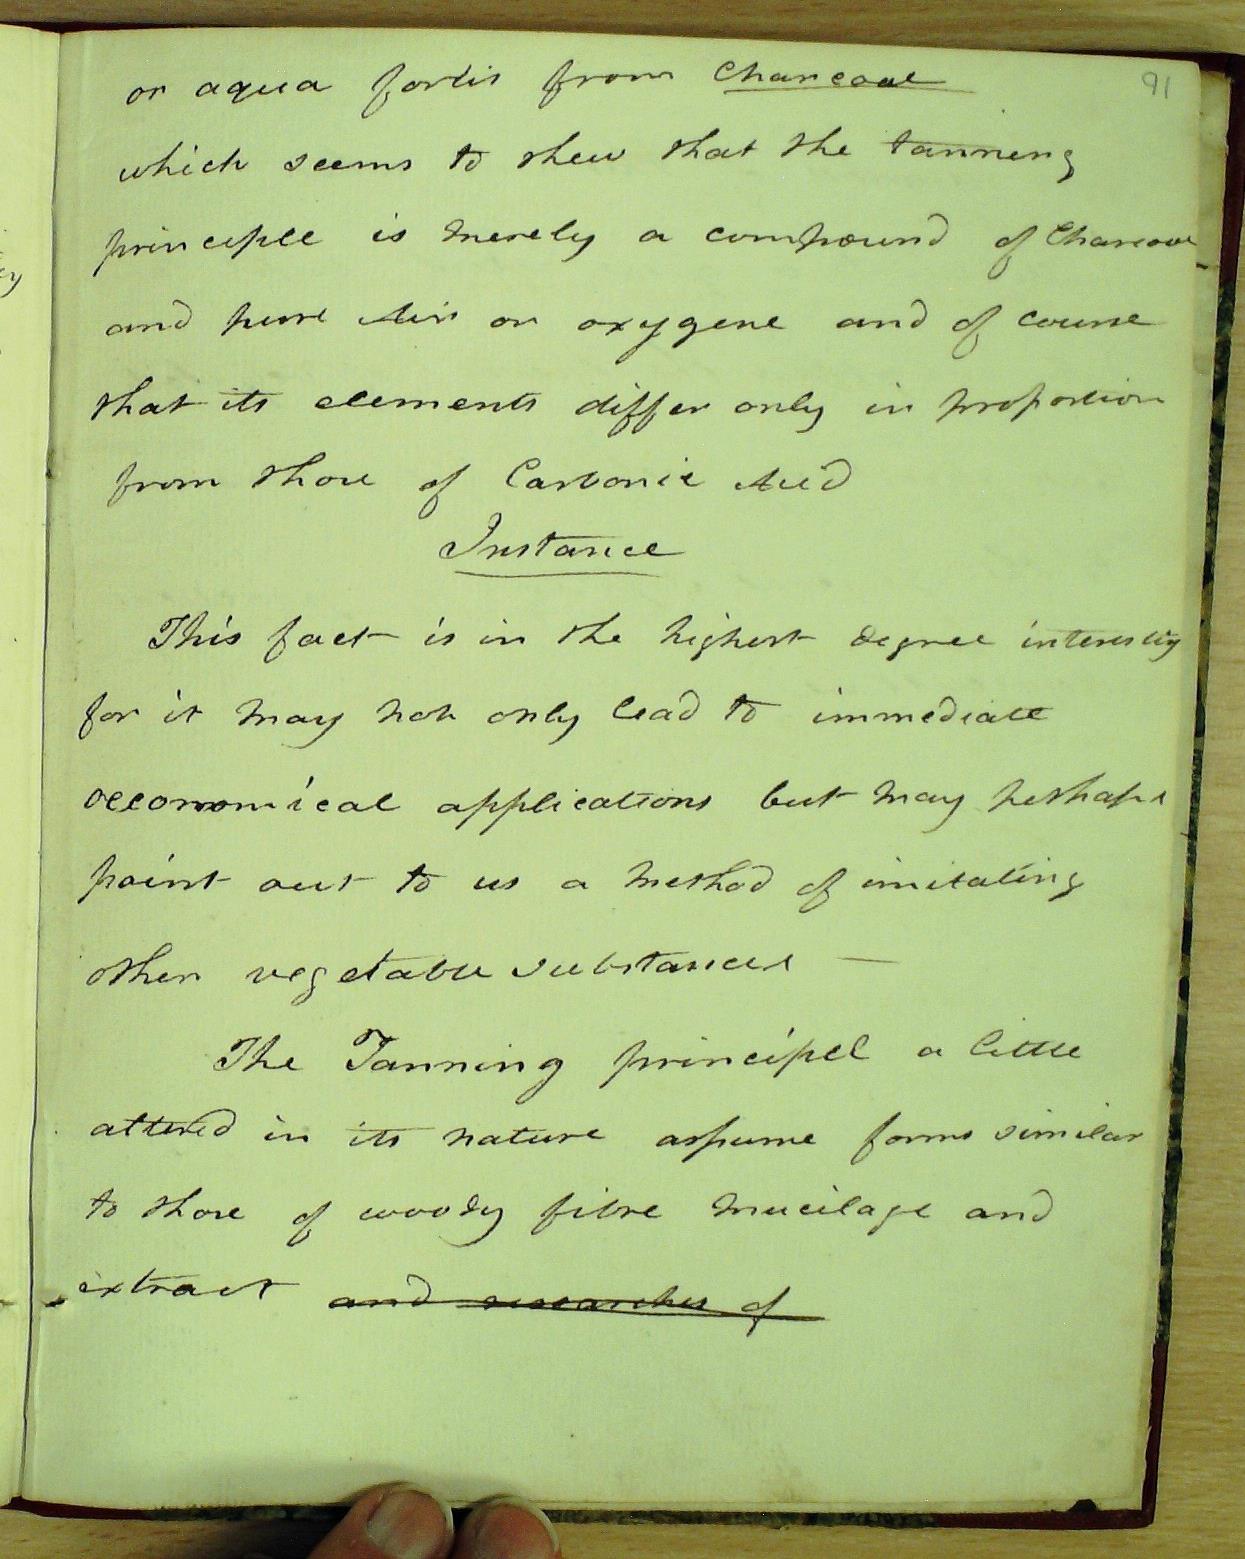 91
or aqua fortis from Charcoal
which seems to shew that the tanning
principle is merely a compound of Charcoal
and pure Air or oxygene and of course
that its elements differ only in proportion
from those of Carbonic Acid
Instance
This fact is in the highest degree interesting
for it may not only lead to immediate
oeconomical applications but may perhaps
point out to us a method of imitating
other vegetable substances —
The Tanning principel a little
altered in its nature assume forms similar
to those of woody fibre mucilage and
extract and researches of